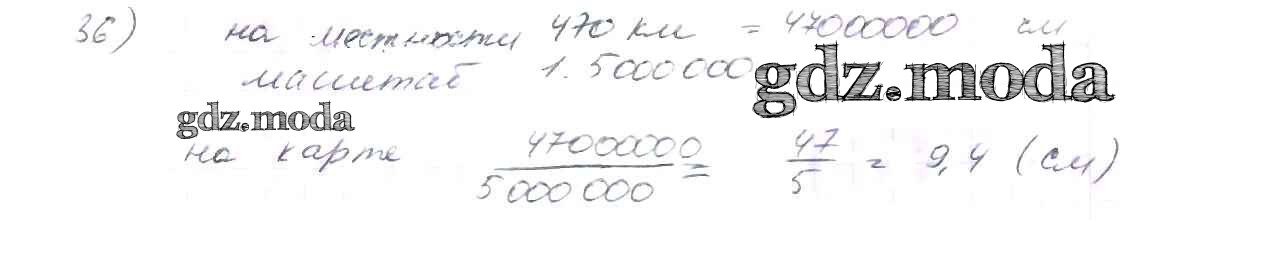 36) на местности 470 км = 47000000 см
масштаб 1:5000000
gdz.moda
gdz.moda
на карте 47000000/5000000 = 47/5 = 9,4 (см)